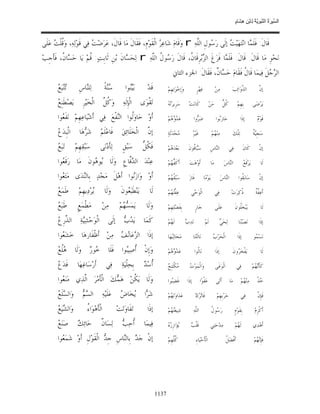 السِّيرَةُ النَّبَوِيَّةُ لِابْنِ هِشَامٍ
قَالَ فَلَمَّا انْتَهَيْتُ إلَى رَسُولِ اللَّهِ وَقَامَ شَاعِرُ الْقَوْمِ، فَقَالَ مَا قَالَ، عَرَضْتُ فِي قَوْلِهِ، وَقُلْتُ عَلَى
نَحْوِ مَا قَالَ. قَالَ: فَلَمَّا فَرَغَ الزِّبْرِقَانُ، قَالَ رَسُولُ اللَّهِ لِحَسَّانَ بْنِ ثَابِتٍ: قُمْ يَا حَسَّانُ، فَأَجِبْ
الرَّجُلَ فِيمَا قَالَ فَقَامَ حَسَّانُ، فَقَالَ: الجزء الثاني
إنَّ الذَّوَائِبَ مِنْ فِهْرٍ وَإِخْوَتِهِمْ قَدْ بَيَّنُوا سُنَّةً لِلنَّاسِ تُتَّبَعُ
يَرْضَى بِهِمْ كُلُّ مَنْ كَانَتْ سَرِيرَتُهُ تَقْوَى الْإِلَهِ وَكُلَّ الْخَيْرِ يَصْطَنِعُ
قَوْمٌ إذَا حَارَبُوا ضَرُّوا عَدُوَّهُمْ أَوْ حَاوَلُوا النَّفْعَ فِي أَشْيَاعِهِمْ نَفَعُوا
سَجِيَّةٌ تِلْكَ مِنْهُمْ غَيْرُ مُحْدَثَةٍ إنَّ الْخَلَائِقَ فَاعْلَمْ شَرُّهَا الْبِدَعُ
إنْ كَانَ فِي النَّاسِ سَبَّاقُونَ بَعْدَهُمْ فَكُلُّ سَبْقٍ لِأَدْنَى سَبْقِهِمْ تَبَعُ
لَا يَرْقَعُ النَّاسُ مَا أَوْهَتْ أَكُفُّهُمْ عِنْدَ الدِّفَاعِ وَلَا يُوهُونَ مَا رَقَعُوا
إنْ سَابَقُوا النَّاسَ يَوْمًا فَازَ سَبْقُهُمْ أَوْ وَازَنُوا أَهْلَ مَجْدٍ بِالنَّدَى مَتَعُوا
أَعِفَّةٌ ذُكِرَتْ فِي الْوَحْيِ عِفَّتُهُمْ لَا يَنْطَبِعُونَ وَلَا يُرْدِيهِمْ طَمَعُ
لَا يَبْخَلُونَ عَلَى جَارٍ بِفَضْلِهِمْ وَلَا يَمَسُّهُمْ مِنْ مَطْمَعٍ طَبَعُ
إذَا نَصَبْنَا لِحَيٍّ لَمْ نَدِبَّ لَهُمْ كَمَا يَدِبُّ إلَى الْوَحْشِيَّةِ الذُّرُعُ
نَسْمُو إذَا الْحَرْبُ نَالَتْنَا مَخَالِبُهَا إذَا الزَّعَانِفُ مِنْ أَظْفَارِهَا خَشَعُوا
لَا يَفْخَرُونَ إذَا نَالُوا عَدُوَّهُمْ وَإِنْ أُصِيبُوا فَلَا خُورٌ وَلَا هُلُعُ
كَأَنَّهُمْ فِي الْوَغَى وَالْمَوْتُ مُكْتَنِعٌ أُسْدٌ بِحِلْيَةَ فِي أَرْسَاغِهَا فَدَعُ
خُذْ مِنْهُمْ مَا أَتَى عَفْوًا إذَا غَضِبُوا وَلَا يَكُنْ هَمُّكَ الْأَمْرَ الَّذِي مَنَعُوا
فَإِنَّ فِي حَرْبِهِمْ فَاتْرُكْ عَدَاوَتَهُمْ شَرًّا يُخَاضُ عَلَيْهِ السُّمُّ وَالسَّلَعُ
أَكْرِمْ بِقَوْمٍ رَسُولُ اللَّهِ شِيعَتُهُمْ إذَا تَفَاوَتَتْ الْأَهْوَاءُ وَالشِّيَعُ
أَهْدِي لَهُمْ مِدْحَتِي قَلْبٌ يُؤَازِرُهُ فِيمَا أُحِبُّ لِسَانٌ حَائِكٌ صَنَعُ
فَإِنَّهُمْ أَفْضَلُ الْأَحْيَاءِ كُلِّهِمْ إنْ جَدَّ بِالنَّاسِ جِدُّ الْقَوْلِ أَوْ شَمَعُوا
1137